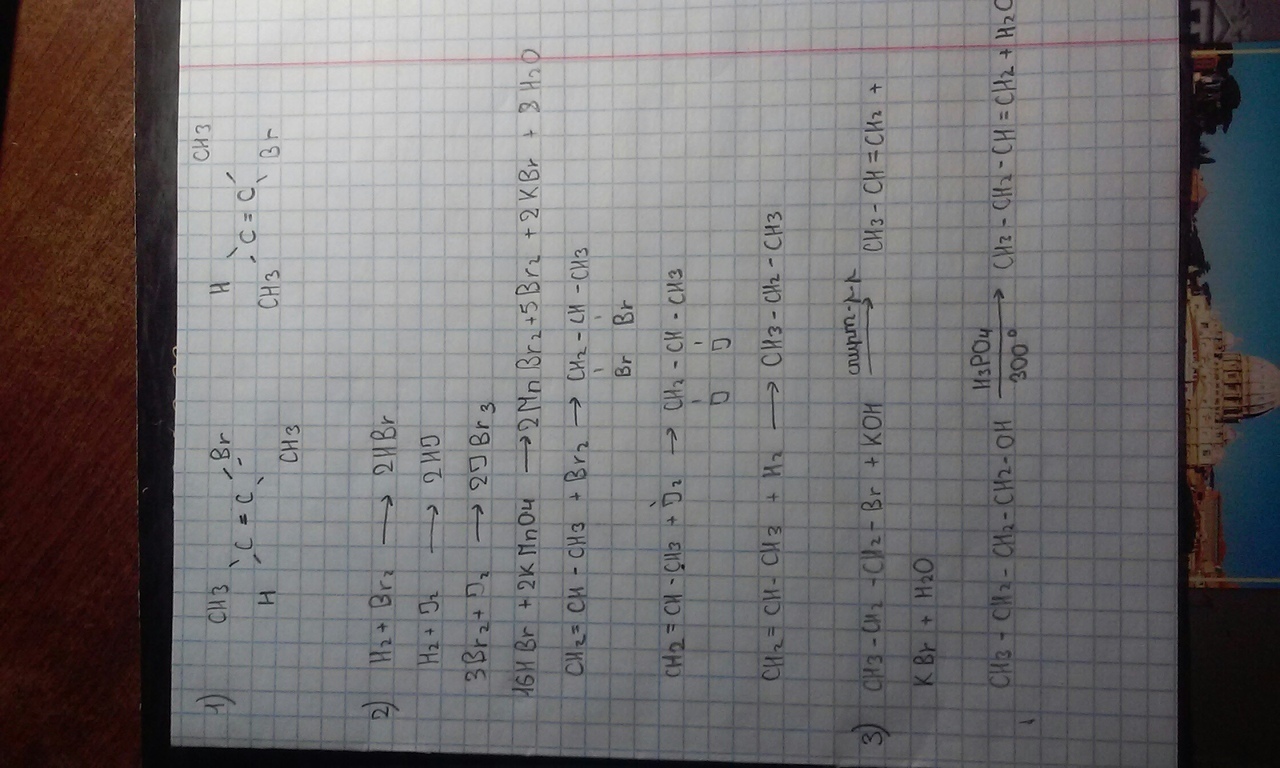 1) CH3 Br H CH3
C = C C = C
H CH3 CH3 Br
2) H2 + Br2 → 2HBr
H2 + J2 → 2HJ
3Br2 + J2 → 2JBr3
16HBr + 2KMnO4 → 2MnBr2 + 5Br2 + 2KBr + 8H2O
CH2 = CH - CH3 + Br2 → CH2 - CH - CH3
Br Br
CH2 = CH - CH3 + J2 → CH2 - CH - CH3
J J
CH2 = CH - CH3 + H2 → CH3 - CH2 - CH3
3) CH3 - CH2 - CH2 - Br + KOH спирт-р-р → CH3 - CH = CH2 +
KBr + H2O
CH3 - CH2 - CH2 - CH2 - OH H3PO4 300° → CH3 - CH2 - CH = CH2 + H2O